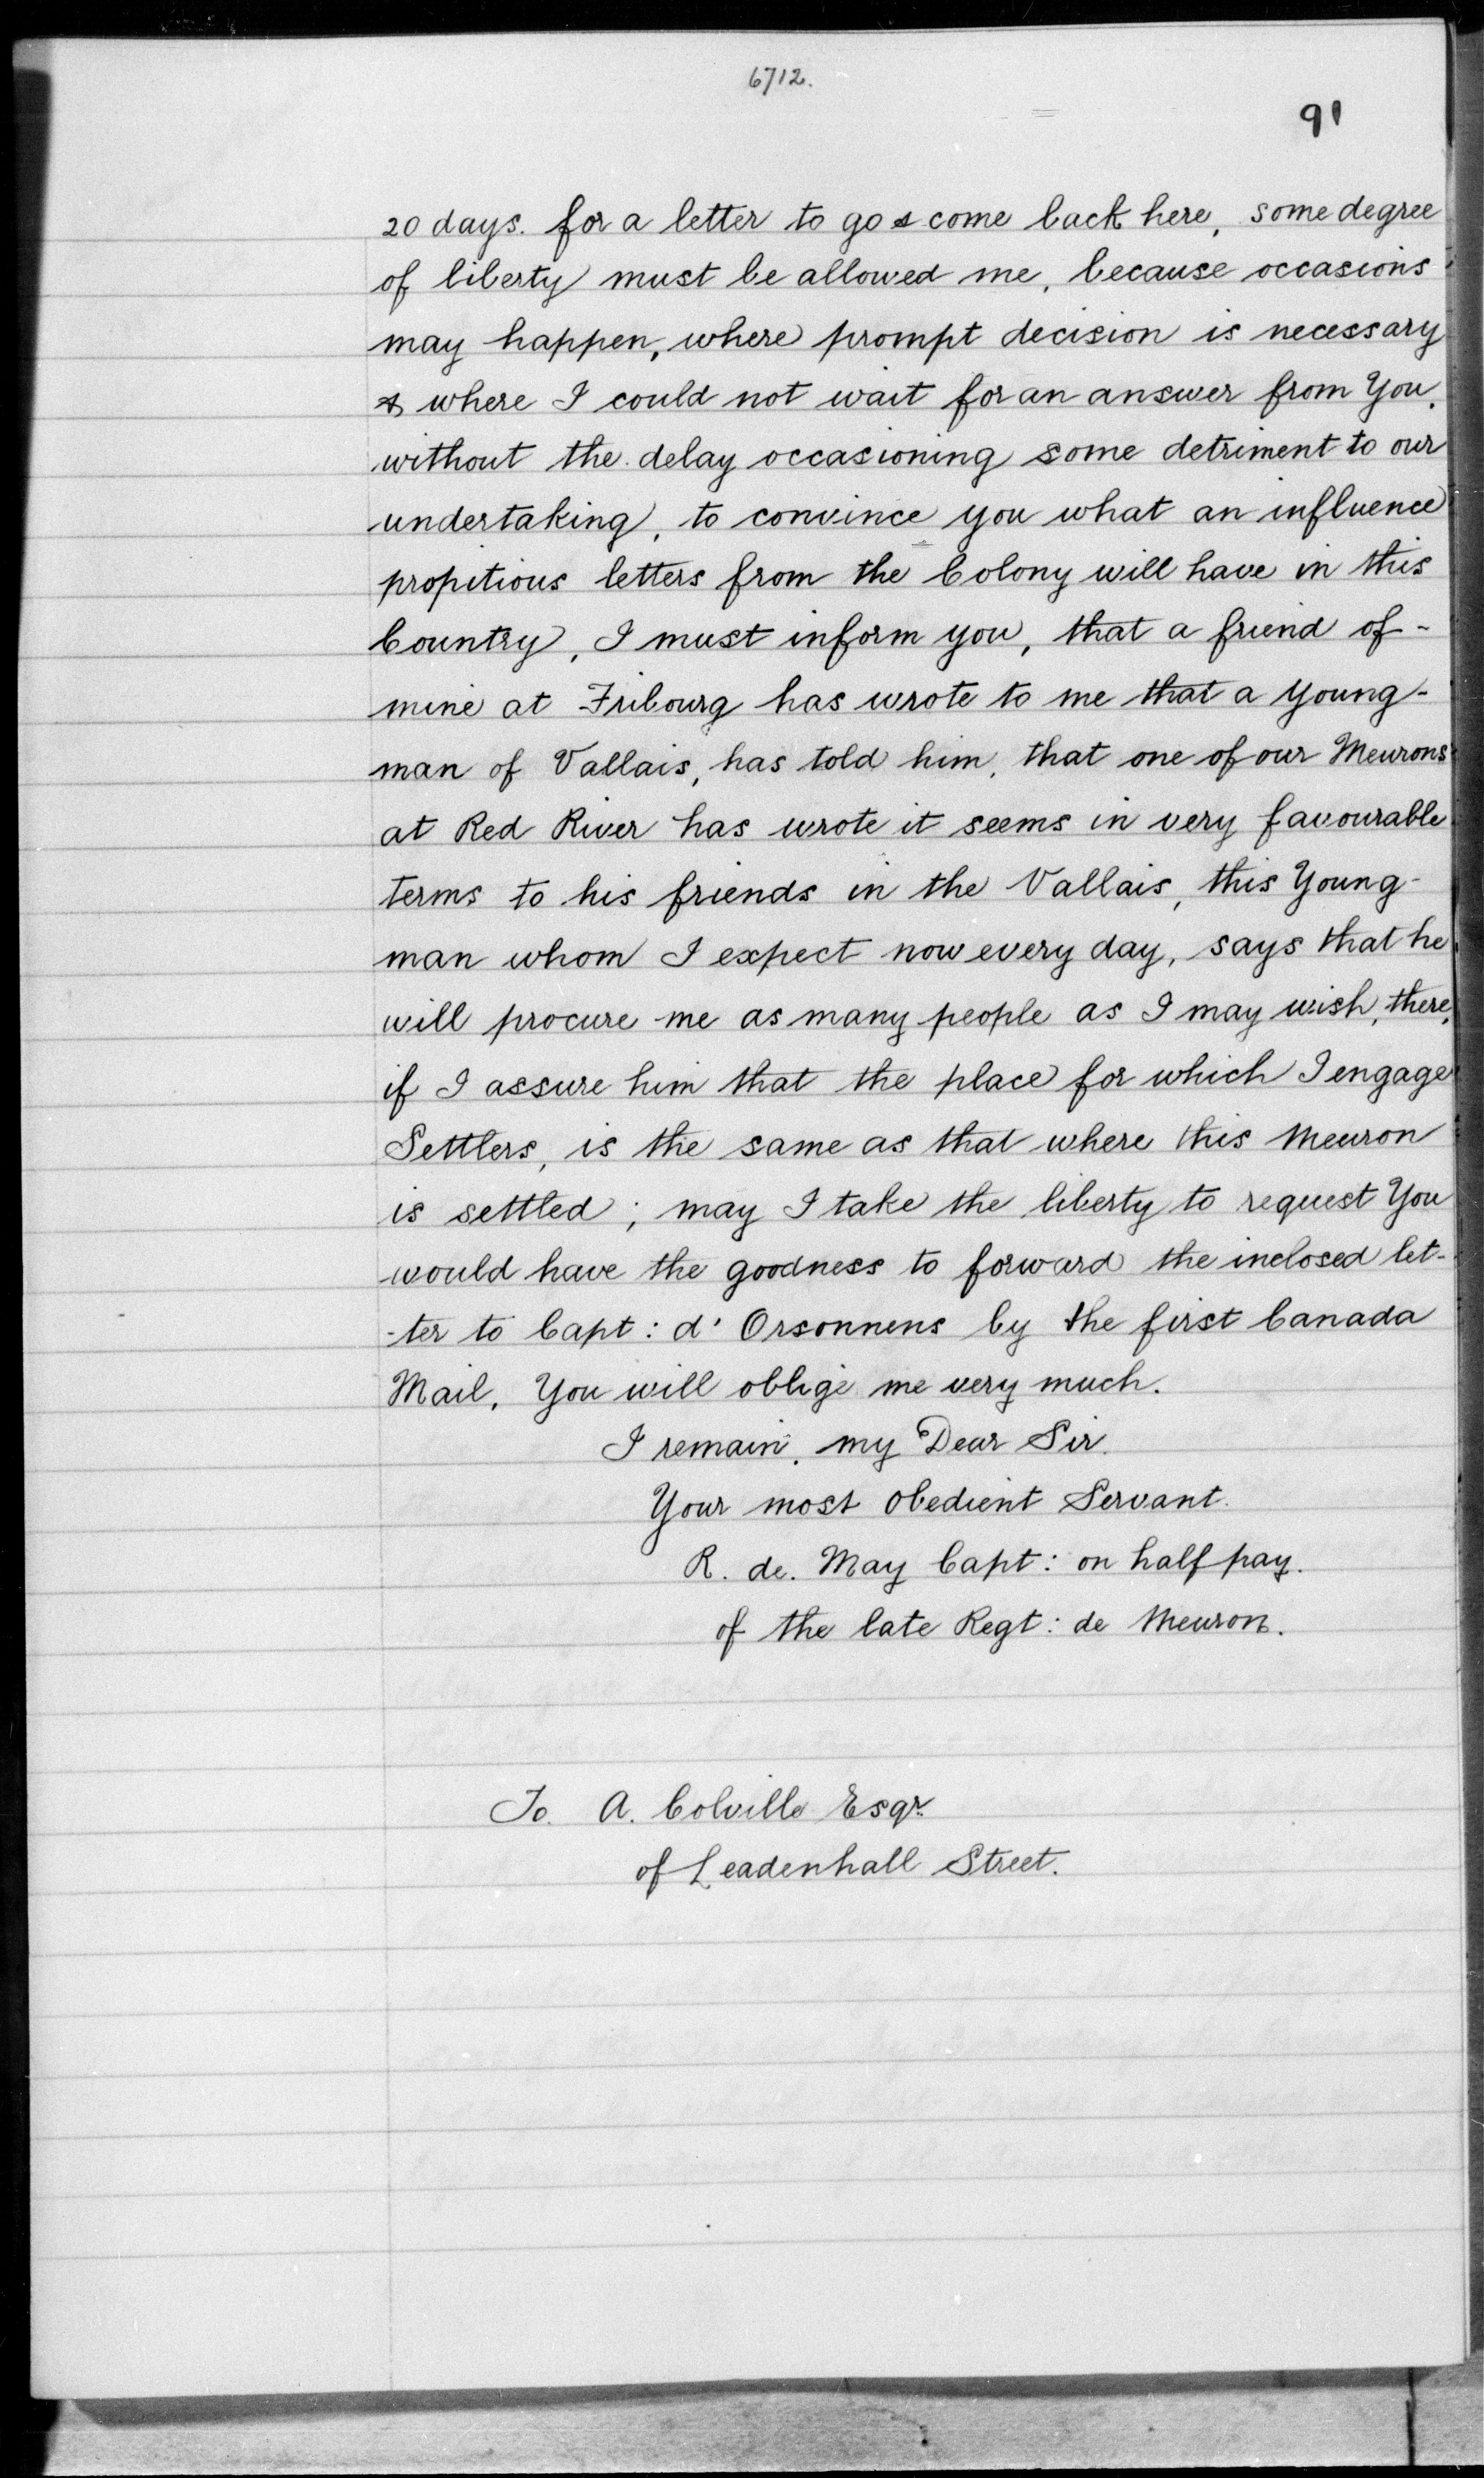 6712.
91
20 days. for a letter to go & come back here, some degree
of liberty must be allowed me, because occasions
may happen, where prompt decision is necessary
& where I could not wait for an answer from You,
without the delay occasioning some detriment to our
undertaking, to convince you what an influence
propitious letters from the Colony will have in this
Country, I must inform you, that a friend of-
mine at Fribourg has wrote to me that a young-
man of Vallais, has told him, that one of our Meurons
at Red River has wrote it seems in very favourable
terms to his friends in the Vallais, this Young-
man whom I expect now every day, says that he
will procure me as many people as I may wish, there,
if I assure him that the place for which I engage
Settlers, is the same as that where this Meuron
is settled; may I take the liberty to request You
would have the goodness to forward the inclosed let-
-ter to Capt: d'Orsonnens by the first Canada
Mail, You will oblige me very much.
I remain, my Dear Sir.
Your most obedient Servant.
R. de. May Capt: on half pay.
of the late Regt: de Meuron.
To. A. Colville Esqr.
of Leadenhall Street.